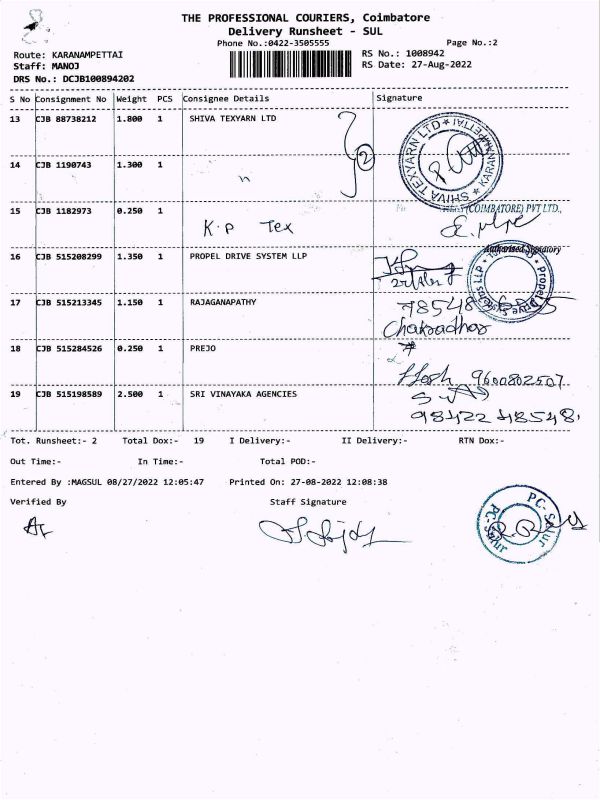 THE PROFESSIONAL COURIERS, Coimbatore
Delivery Runsheet - SUL
Phone No.:0422-3505555 Page No.:2
Route: KARANAMPETTAI RS No.: 1008942
Staff: MANOJ RS Date: 27-Aug-2022
DRS No.: DCJB100894202
S No Consignment No Weight PCS Consignee Details Signature
13 CJB 88738212 1.800 1 SHIVA TEXYARN LTD
2
SHIVA TEXYARN LTD * KARANAMPETTAI *
14 CJB 1190743 1.300 1 "
15 CJB 1182973 0.250 1 K.P Tex
(COIMBATORE) PVT LTD.,
Authorised Signatory
16 CJB 515208299 1.350 1 PROPEL DRIVE SYSTEM LLP
Propel Drive Systems LLP
17 CJB 515213345 1.150 1 RAJAGANAPATHY
Chakradhar
18 CJB 515284526 0.250 1 PREJO
9600802507
19 CJB 515198589 2.500 1 SRI VINAYAKA AGENCIES
98422 48548
Tot. Runsheet:- 2 Total Dox:- 19 I Delivery:- II Delivery:- RTN Dox:-
Out Time:- In Time:- Total POD:-
Entered By :MAGSUL 08/27/2022 12:05:47 Printed On: 27-08-2022 12:08:38
Verified By Staff Signature
PC-Sulur PC-Sulur